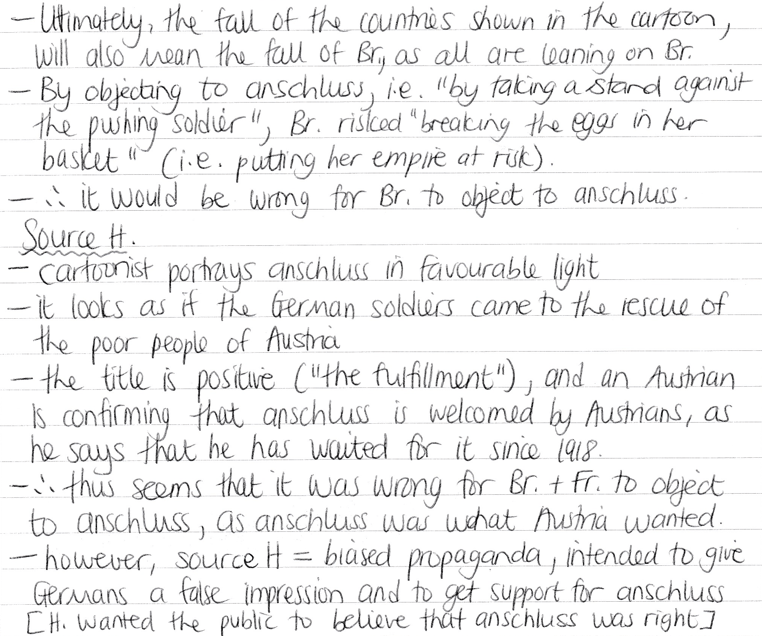 – Ultimately, the fall of the countries shown in the cartoon,
will also mean the fall of Br., as all are leaning on Br.
– By objecting to anschluss, i.e. "by taking a stand against
the pushing soldier", Br. risked "breaking the eggs in her
basket" (i.e. putting her empire at risk).
– ∴ it would be wrong for Br. to object to anschluss.
Source H.
– cartoonist portrays anschluss in favourable light
– it looks as if the German soldiers came to the rescue of
the poor people of Austria
– the title is positive ("the fulfillment"), and an Austrian
is confirming that anschluss is welcomed by Austrians, as
he says that he has waited for it since 1918.
– ∴ thus seems that it was wrong for Br. + Fr. to object
to anschluss, as anschluss was what Austria wanted.
– however, source H = biased propaganda, intended to give
Germans a false impression and to get support for anschluss
[H. wanted the public to believe that anschluss was right]